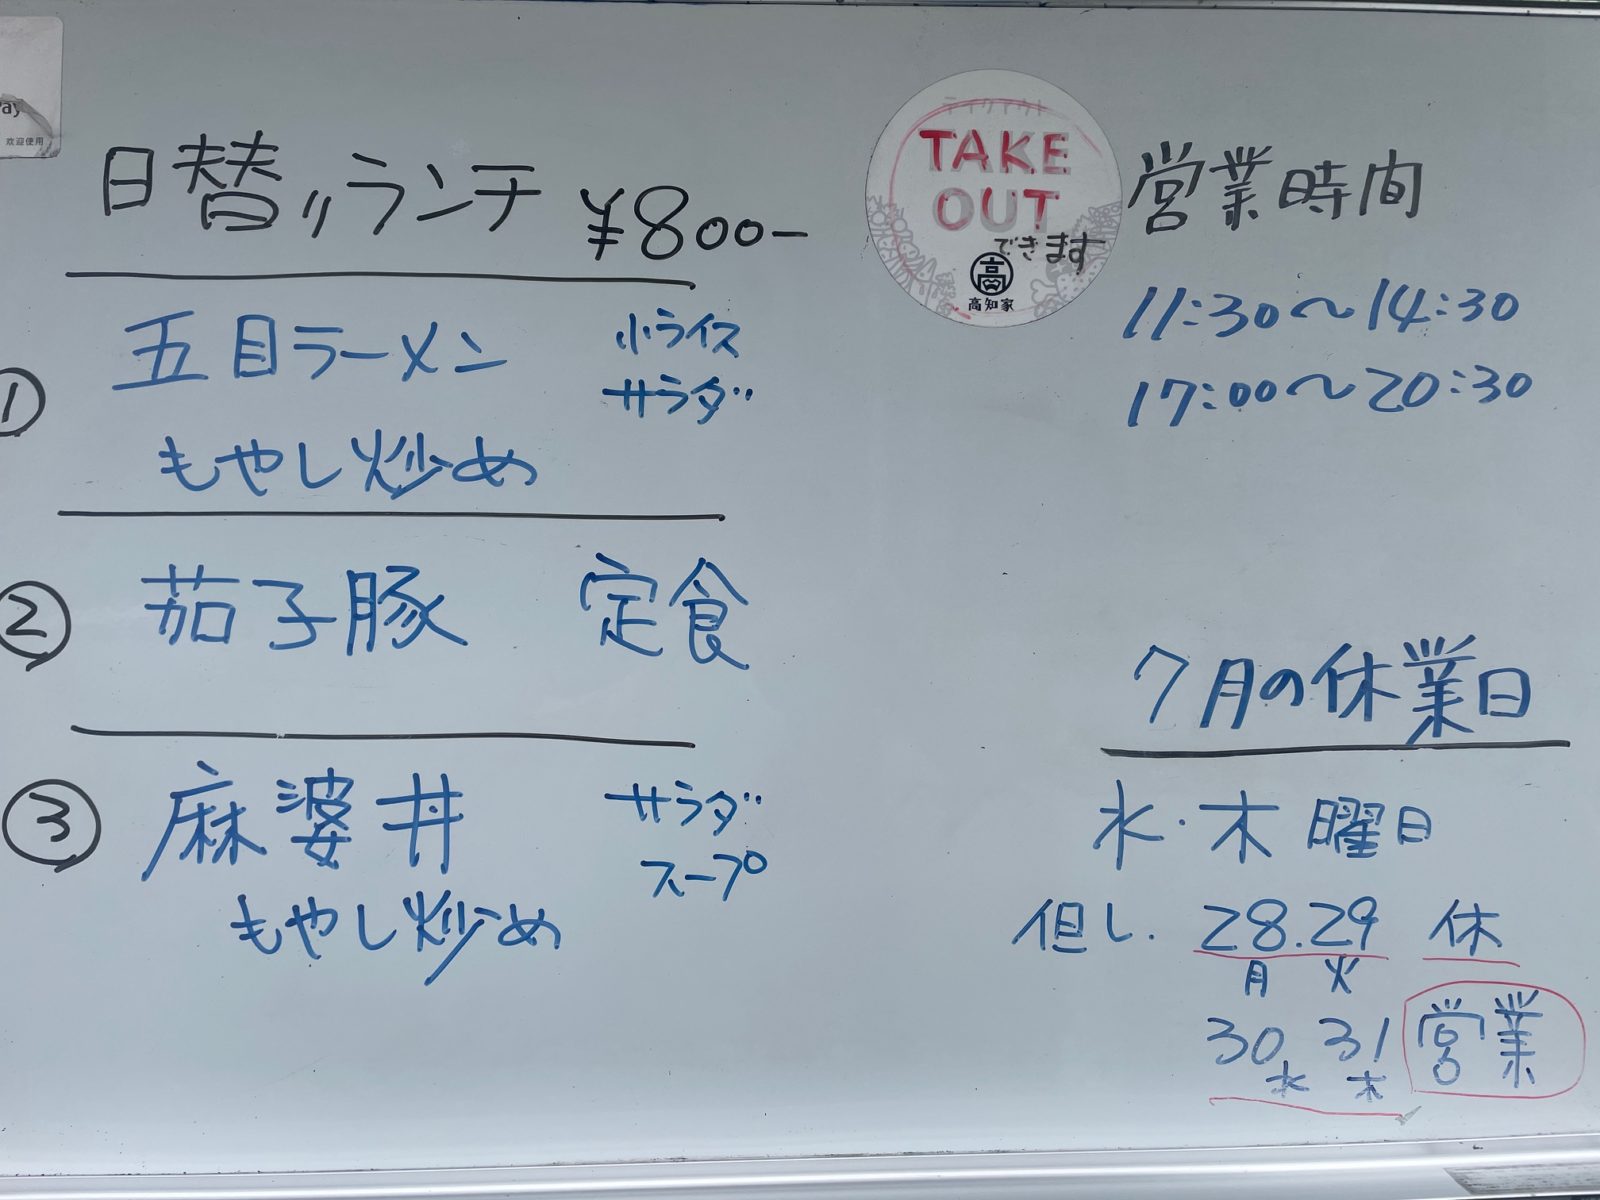 ay
欢迎使用
日替りランチ ¥800-
① 五目ラーメン 小ライス
サラダ
もやし炒め
② 茄子豚 定食
③ 麻婆丼 サラダ
スープ
もやし炒め
テイクアウト
TAKE
OUT
できます
高
高知家
営業時間
11:30～14:30
17:00～20:30
7月の休業日
水・木曜日
但し. 28.29 休
月 火
30 31 営業
水 木